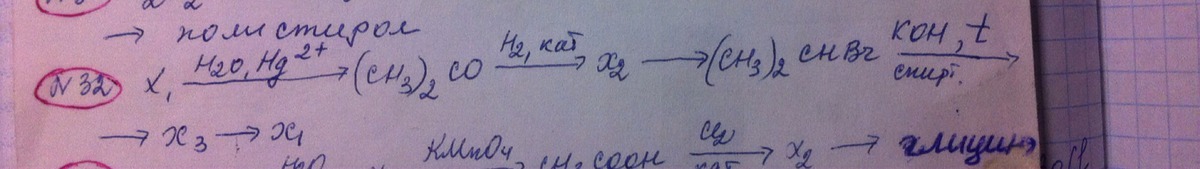 → полистирол
N 32 X₁ H₂O, Hg²⁺ → (CH₃)₂CO H₂, кат → X₂ → (CH₃)₂CHBr КОН, t спирт. →
→ X₃ → X₁
KMnO₄ CH₃COOH Cl₂ кат → X₂ → глицин